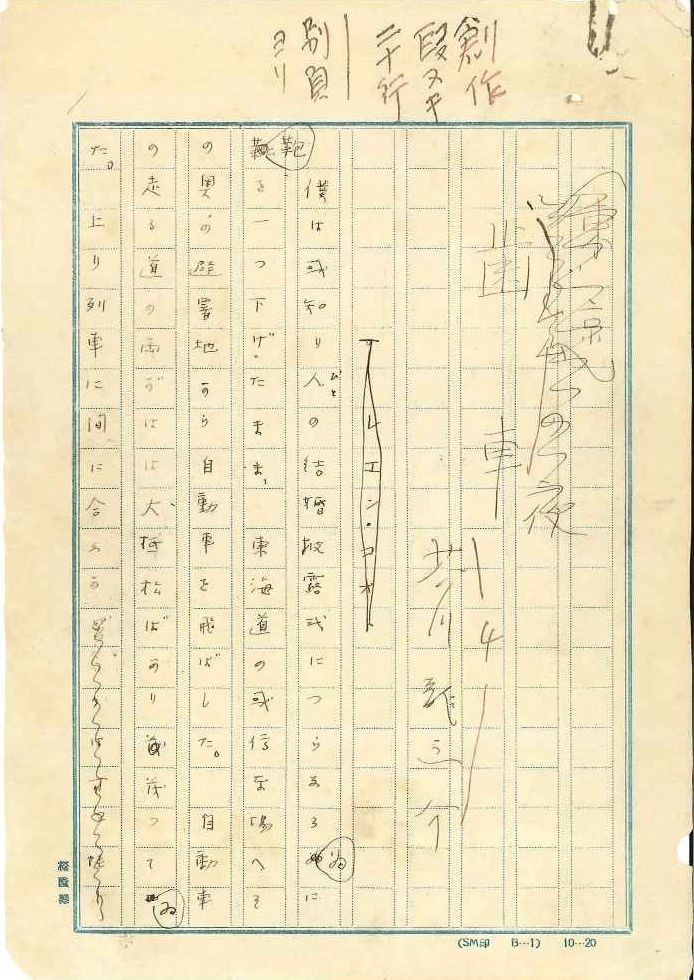 創作
段ヌキ
二十行
別頁
ヨリ
の夜
歯車
芥川龍之介
レエン・コオト
僕は或知り人の結婚披露式につらなる為に
びと
鞄を一つ下げたまま、東海道の或停車場へそ
の奥の避暑地から自動車を飛ばした。自動車
の走る道の両がはは大抵松ばかり茂つてゐ
た。上り列車に間に合ふかどうか
松屋製
(SM印 B…1) 10…20